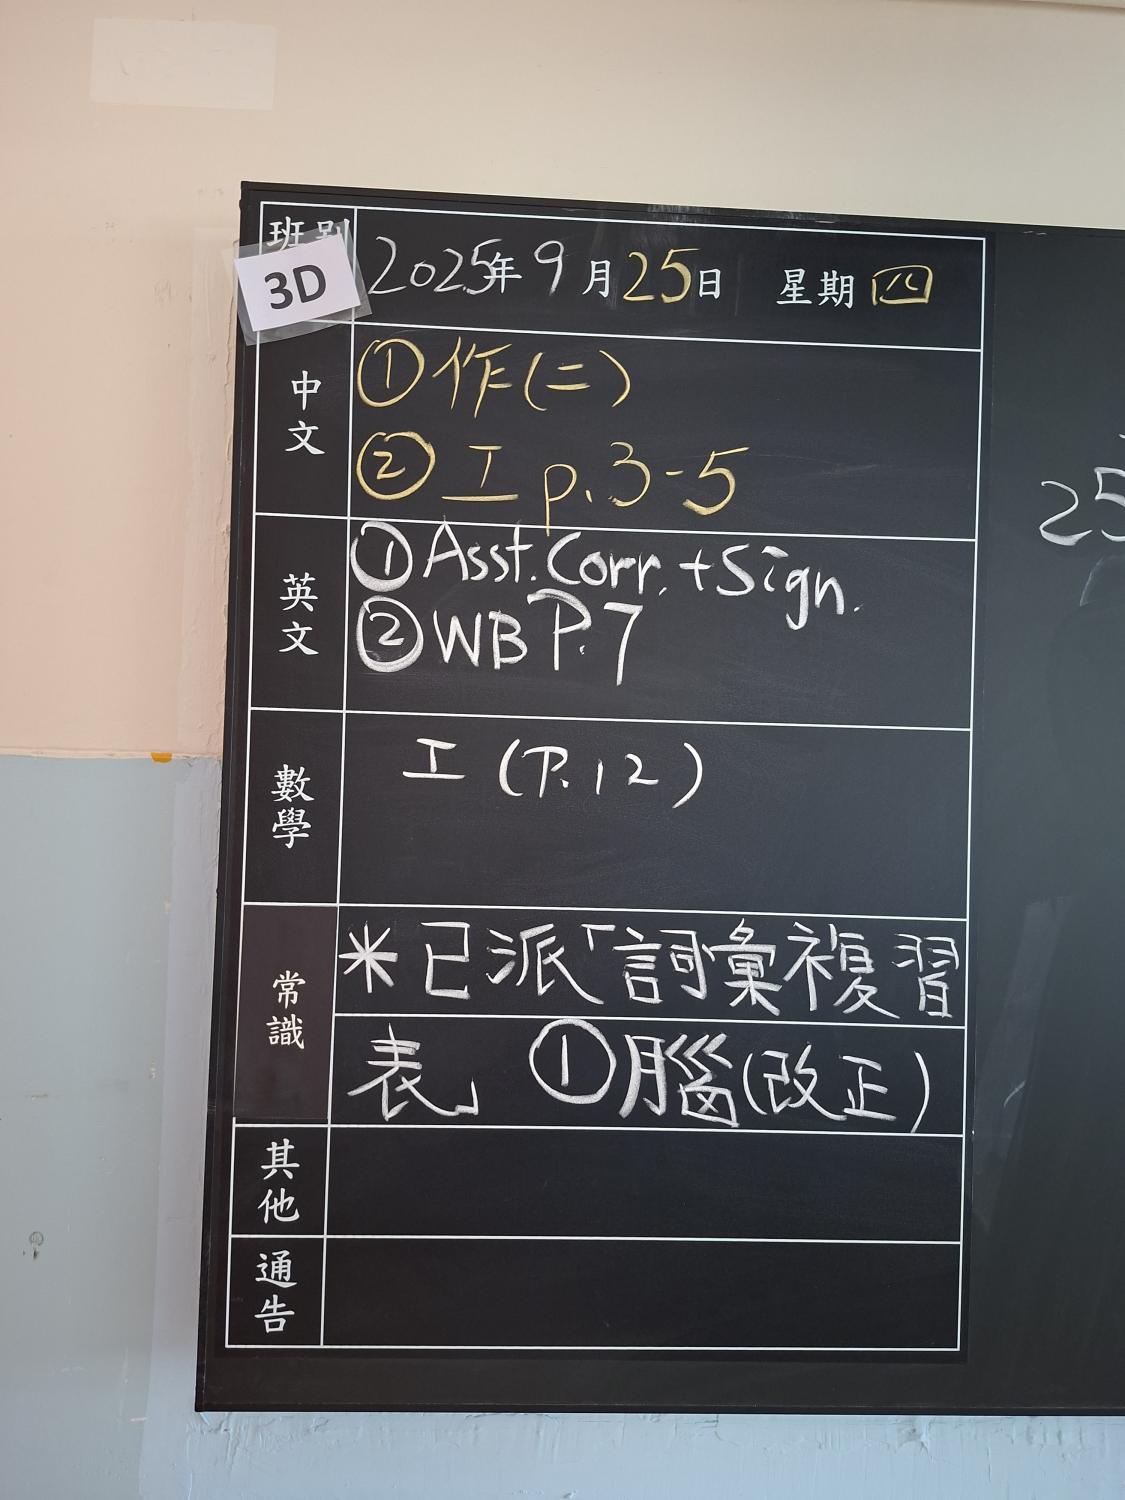 班別
3D
2025年9月25日 星期四
中文
①作(二)
②工 p.3-5
英文
①Asst. Corr. + Sign.
②WB P.7
數學
工 (P.12)
常識
*已派「詞彙複習
表」 ①腦(改正)
其他
通告
25